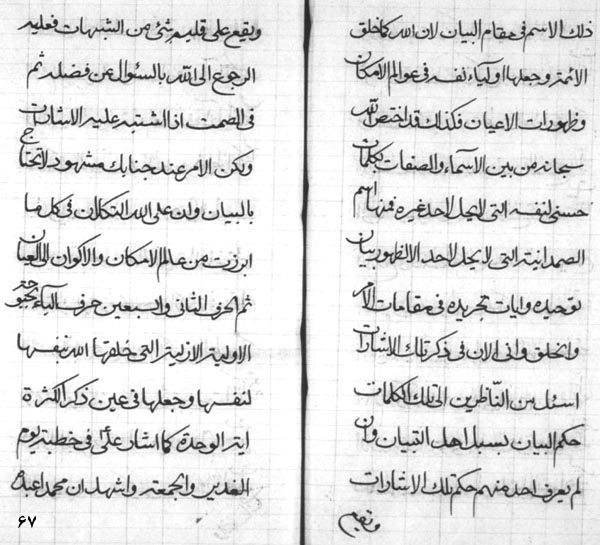 ذلك الاسم فی مقام البیان لان الله کما خلق
الائمة وجعلها اولیاء نفسه فی عوالم الامکان
وظهورات الاعیان فکذلك قد اختص الله
سبحانه من بین الاسماء والصفات بکلمات
حسنی لنفسه التی لایحل لاحد غیره فمنها اسم
الصمدانیة التی لا یحل لاحد الا لظهور بیان
توحیده وایات تجریده فی مقامات الامر
والخلق وانی الان فی ذکر تلك الاشارات
اسئل من الناظرین الی تلك الکلمات
حکم البیان بسبل اهل التبیان وان
لم یعرف احد منهم حکم تلك الاشارات
ویقع
ویقع علی قلبه شئ من الشبهات فعلیه
الرجوع الی الله بالسؤال عن فضله ثم
فی الصمت اذا اشتبه علیه الاشارات
ولکن الامر عند جنابك مشهود لا یحتاج
بالبیان وان علی الله التکلان فی کل ما
ابرزت من عالم الامکان والاکوان الی العیان
ثم الحرف الثانی والسبعین حرف الیاء
الاولیة الازلیة التی خلقها الله بنفسها
لنفسها وجعلها فی عین ذکر الکثرة
ایة الوحدة کما اشار علی فی خطبة یوم
الغدیر والجمعة واشهد ان محمدا عبده
۶۷